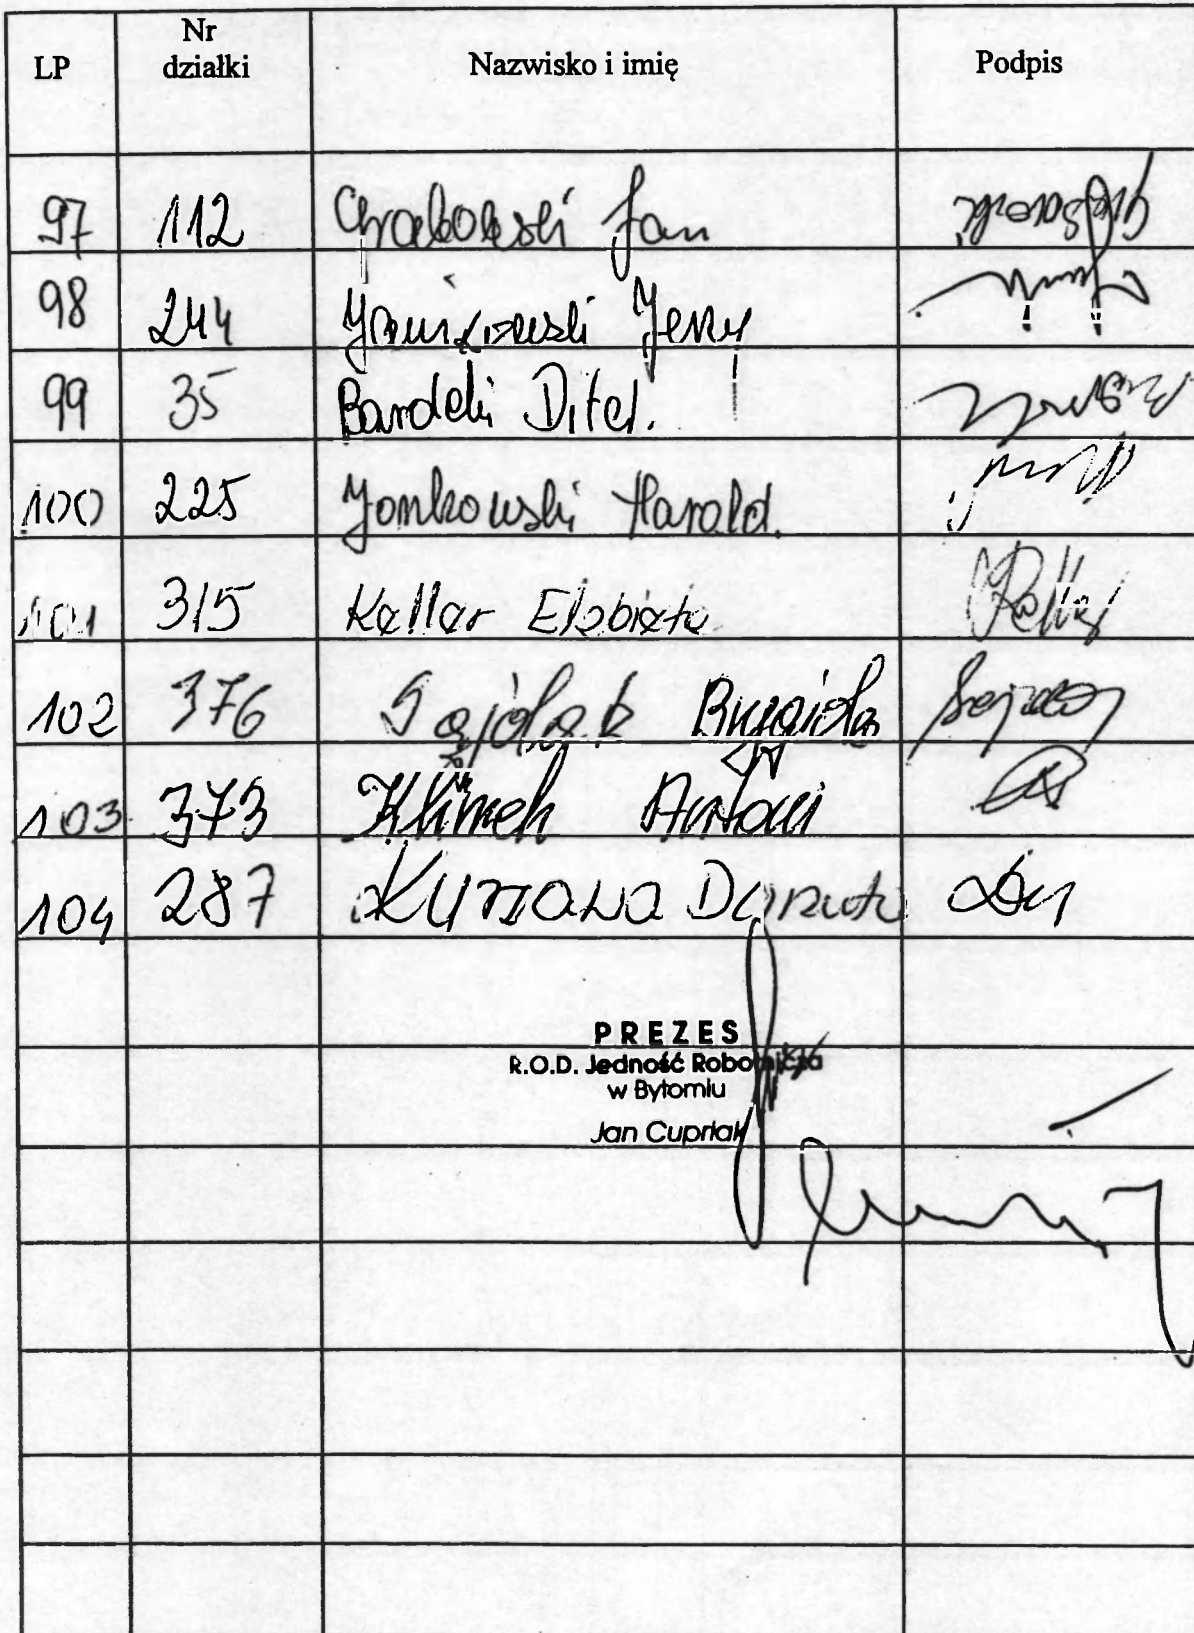 LP Nr działki Nazwisko i imię Podpis
97 112 Jan
98 244 Jerzy
99 35 Bardeli Ditel.
100 225 Jonkowski Harald.
101 315 Keller Elżbieta
102 376 Brygida
103 373 Klimek Antoni
104 287 Kurzawa Danuta
PREZES
R.O.D. Jedność Robotnicza
w Bytomiu
Jan Cupriak